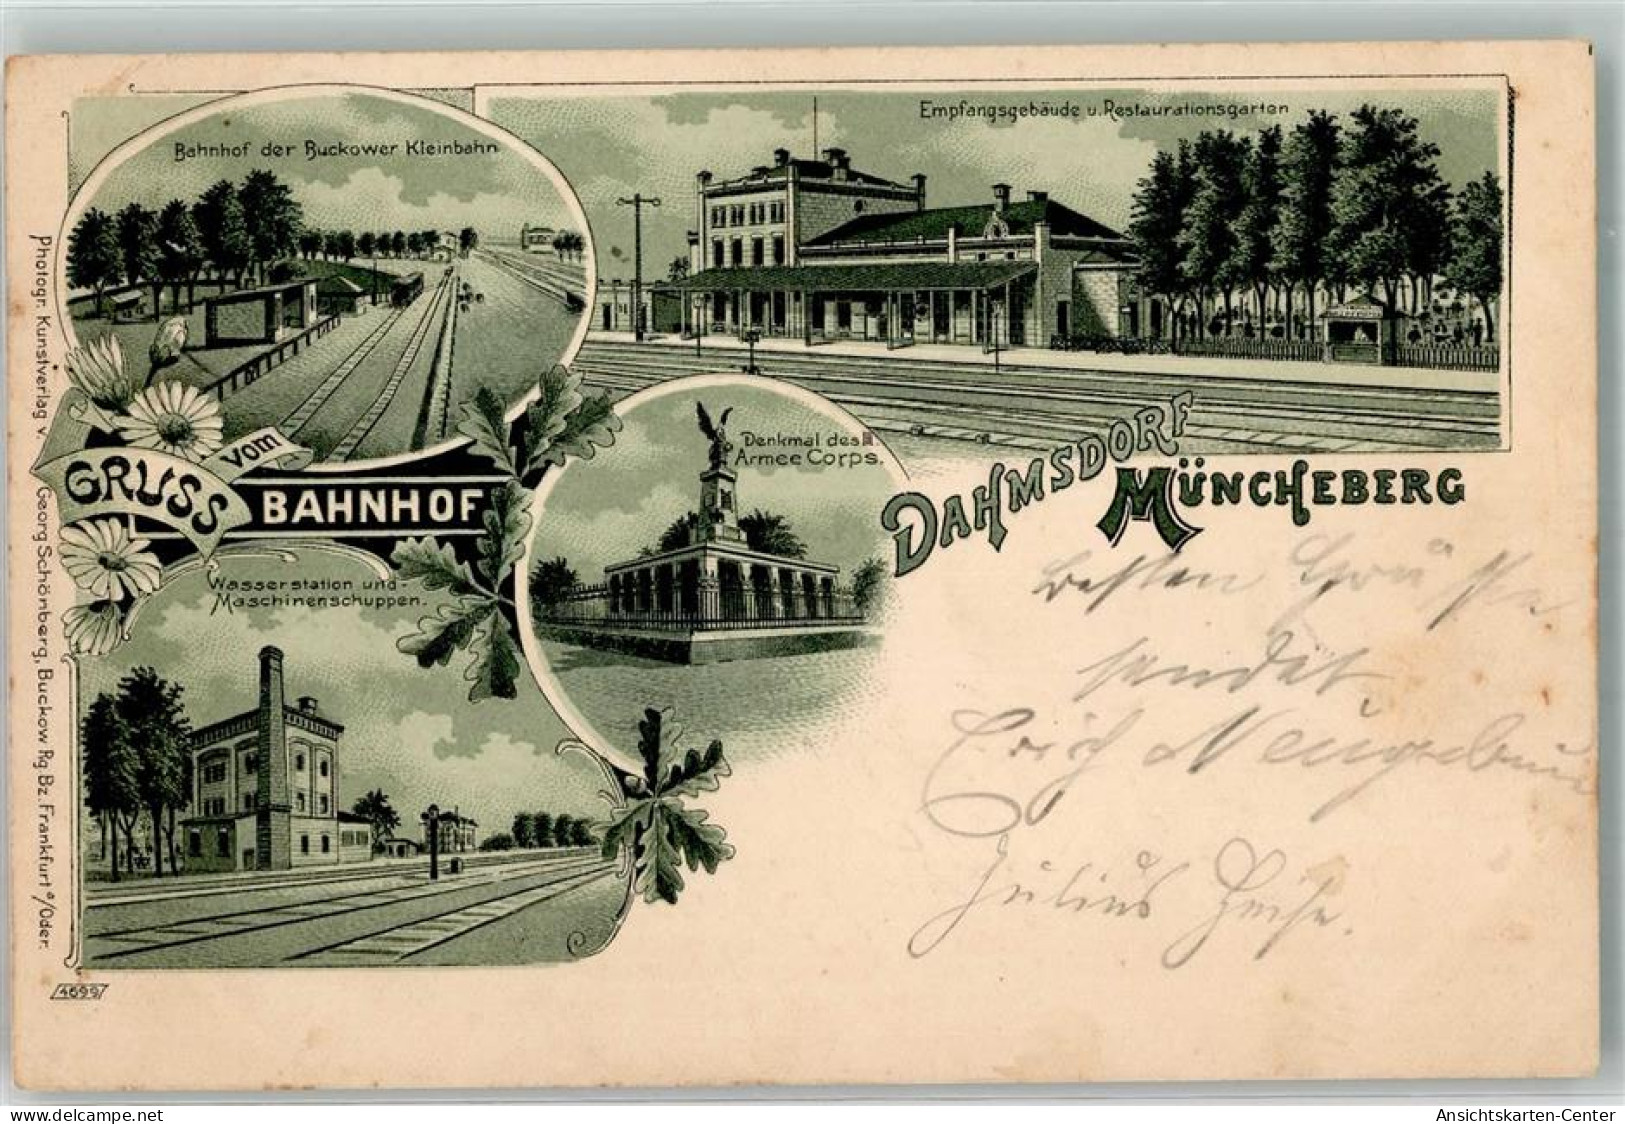 Bahnhof der Buckower Kleinbahn
Empfangsgebäude u. Restaurationsgarten
Denkmal des III.
Armee Corps.
GRUSS
vom
BAHNHOF
DAHMSDORF
MÜNCHEBERG
Wasserstation und
Maschinenschuppen.
Photogr. Kunstverlag v. Georg Schönberg, Buckow Rg. Bz. Frankfurt a/Oder.
4699
Besten Grüße
sendet
Erich Neugebauer
Julius
delcampe.net
Ansichtskarten-Center